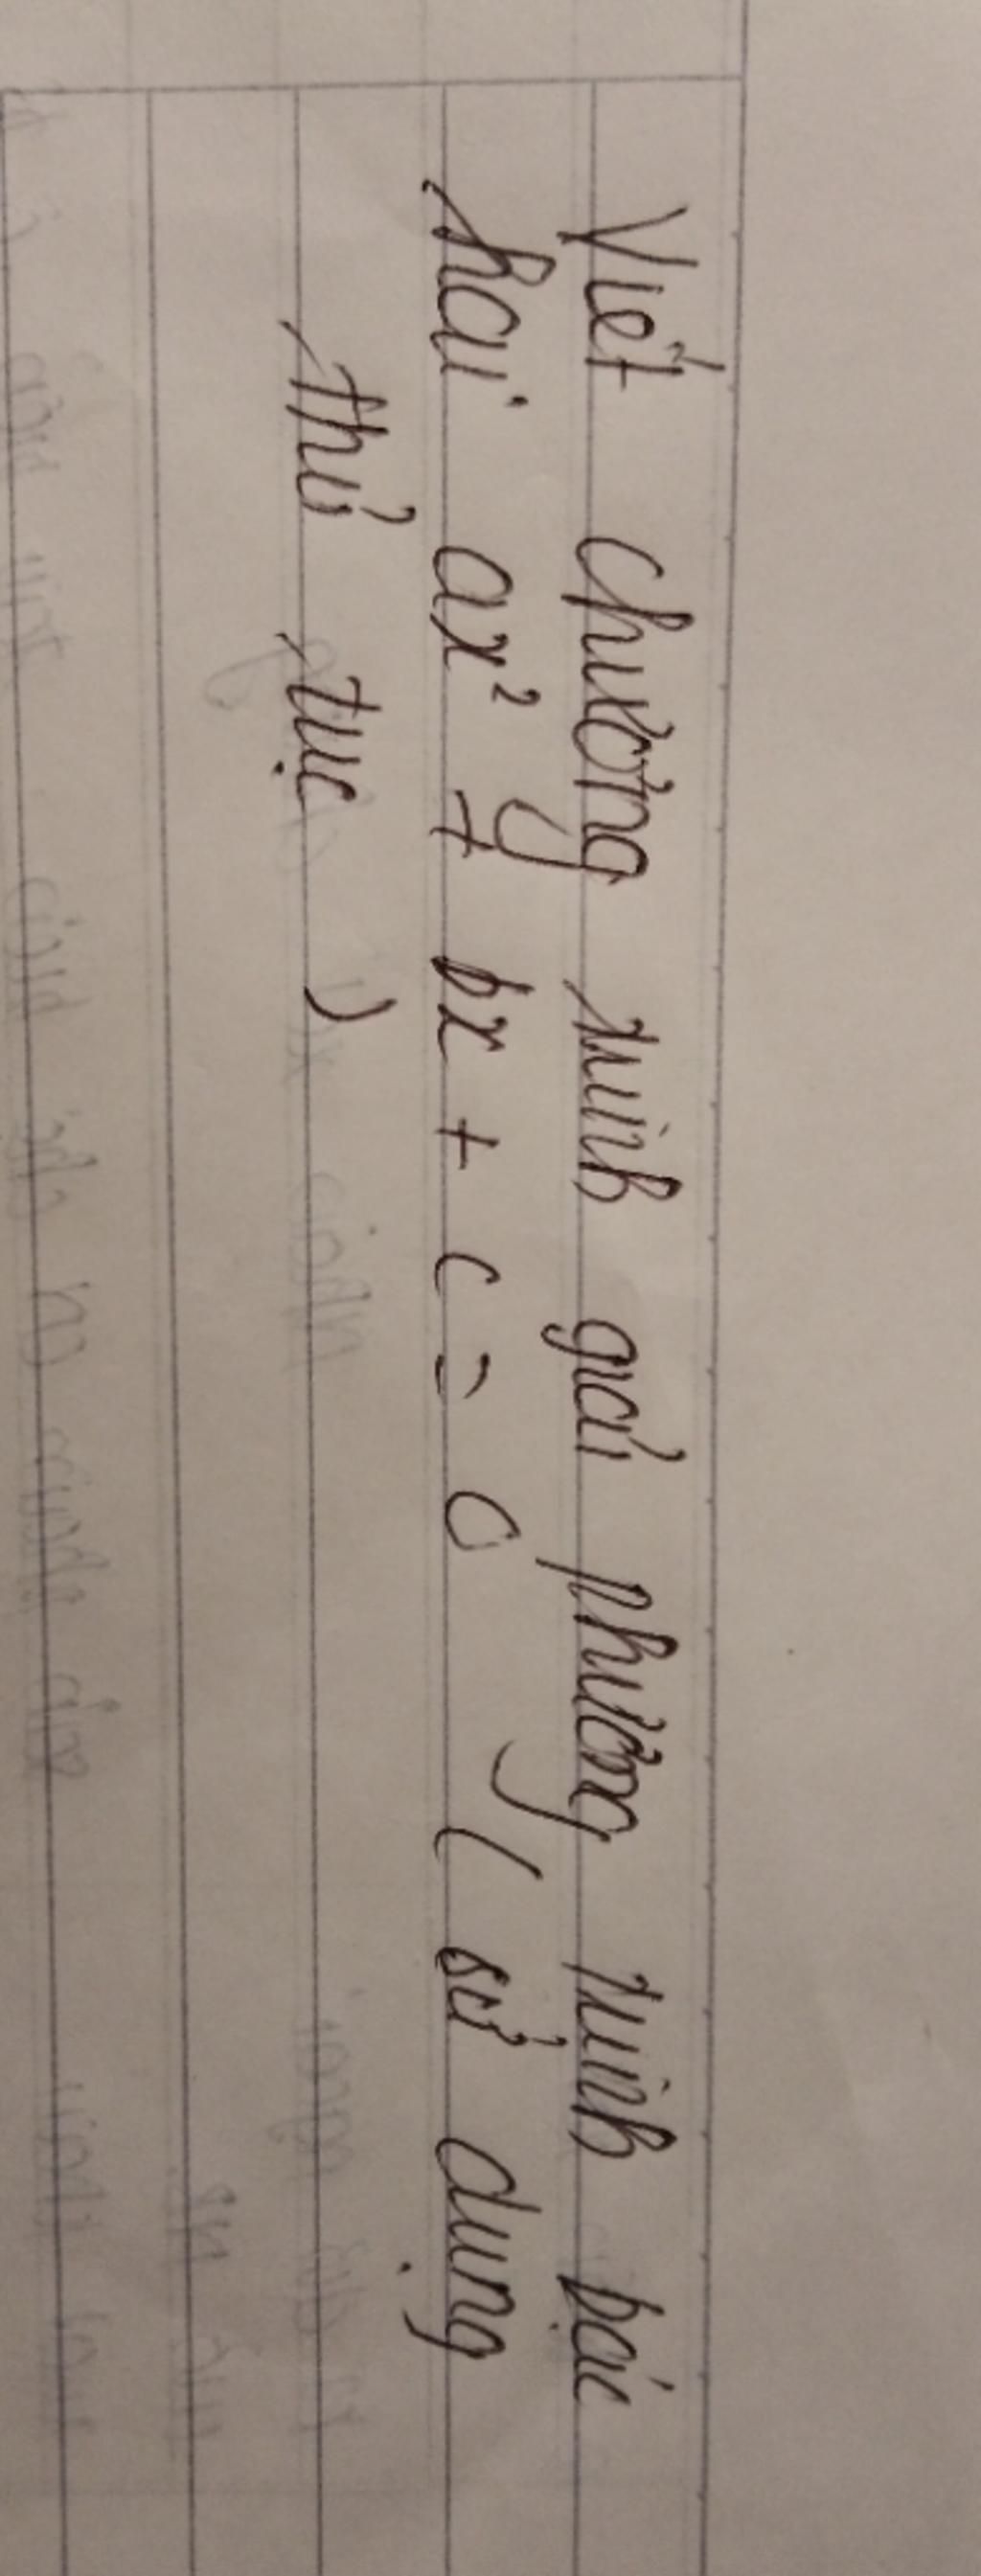 Viết chương trình giải phương trình bậc
hai ax² + bx + c = 0 (sử dụng
thủ tục)